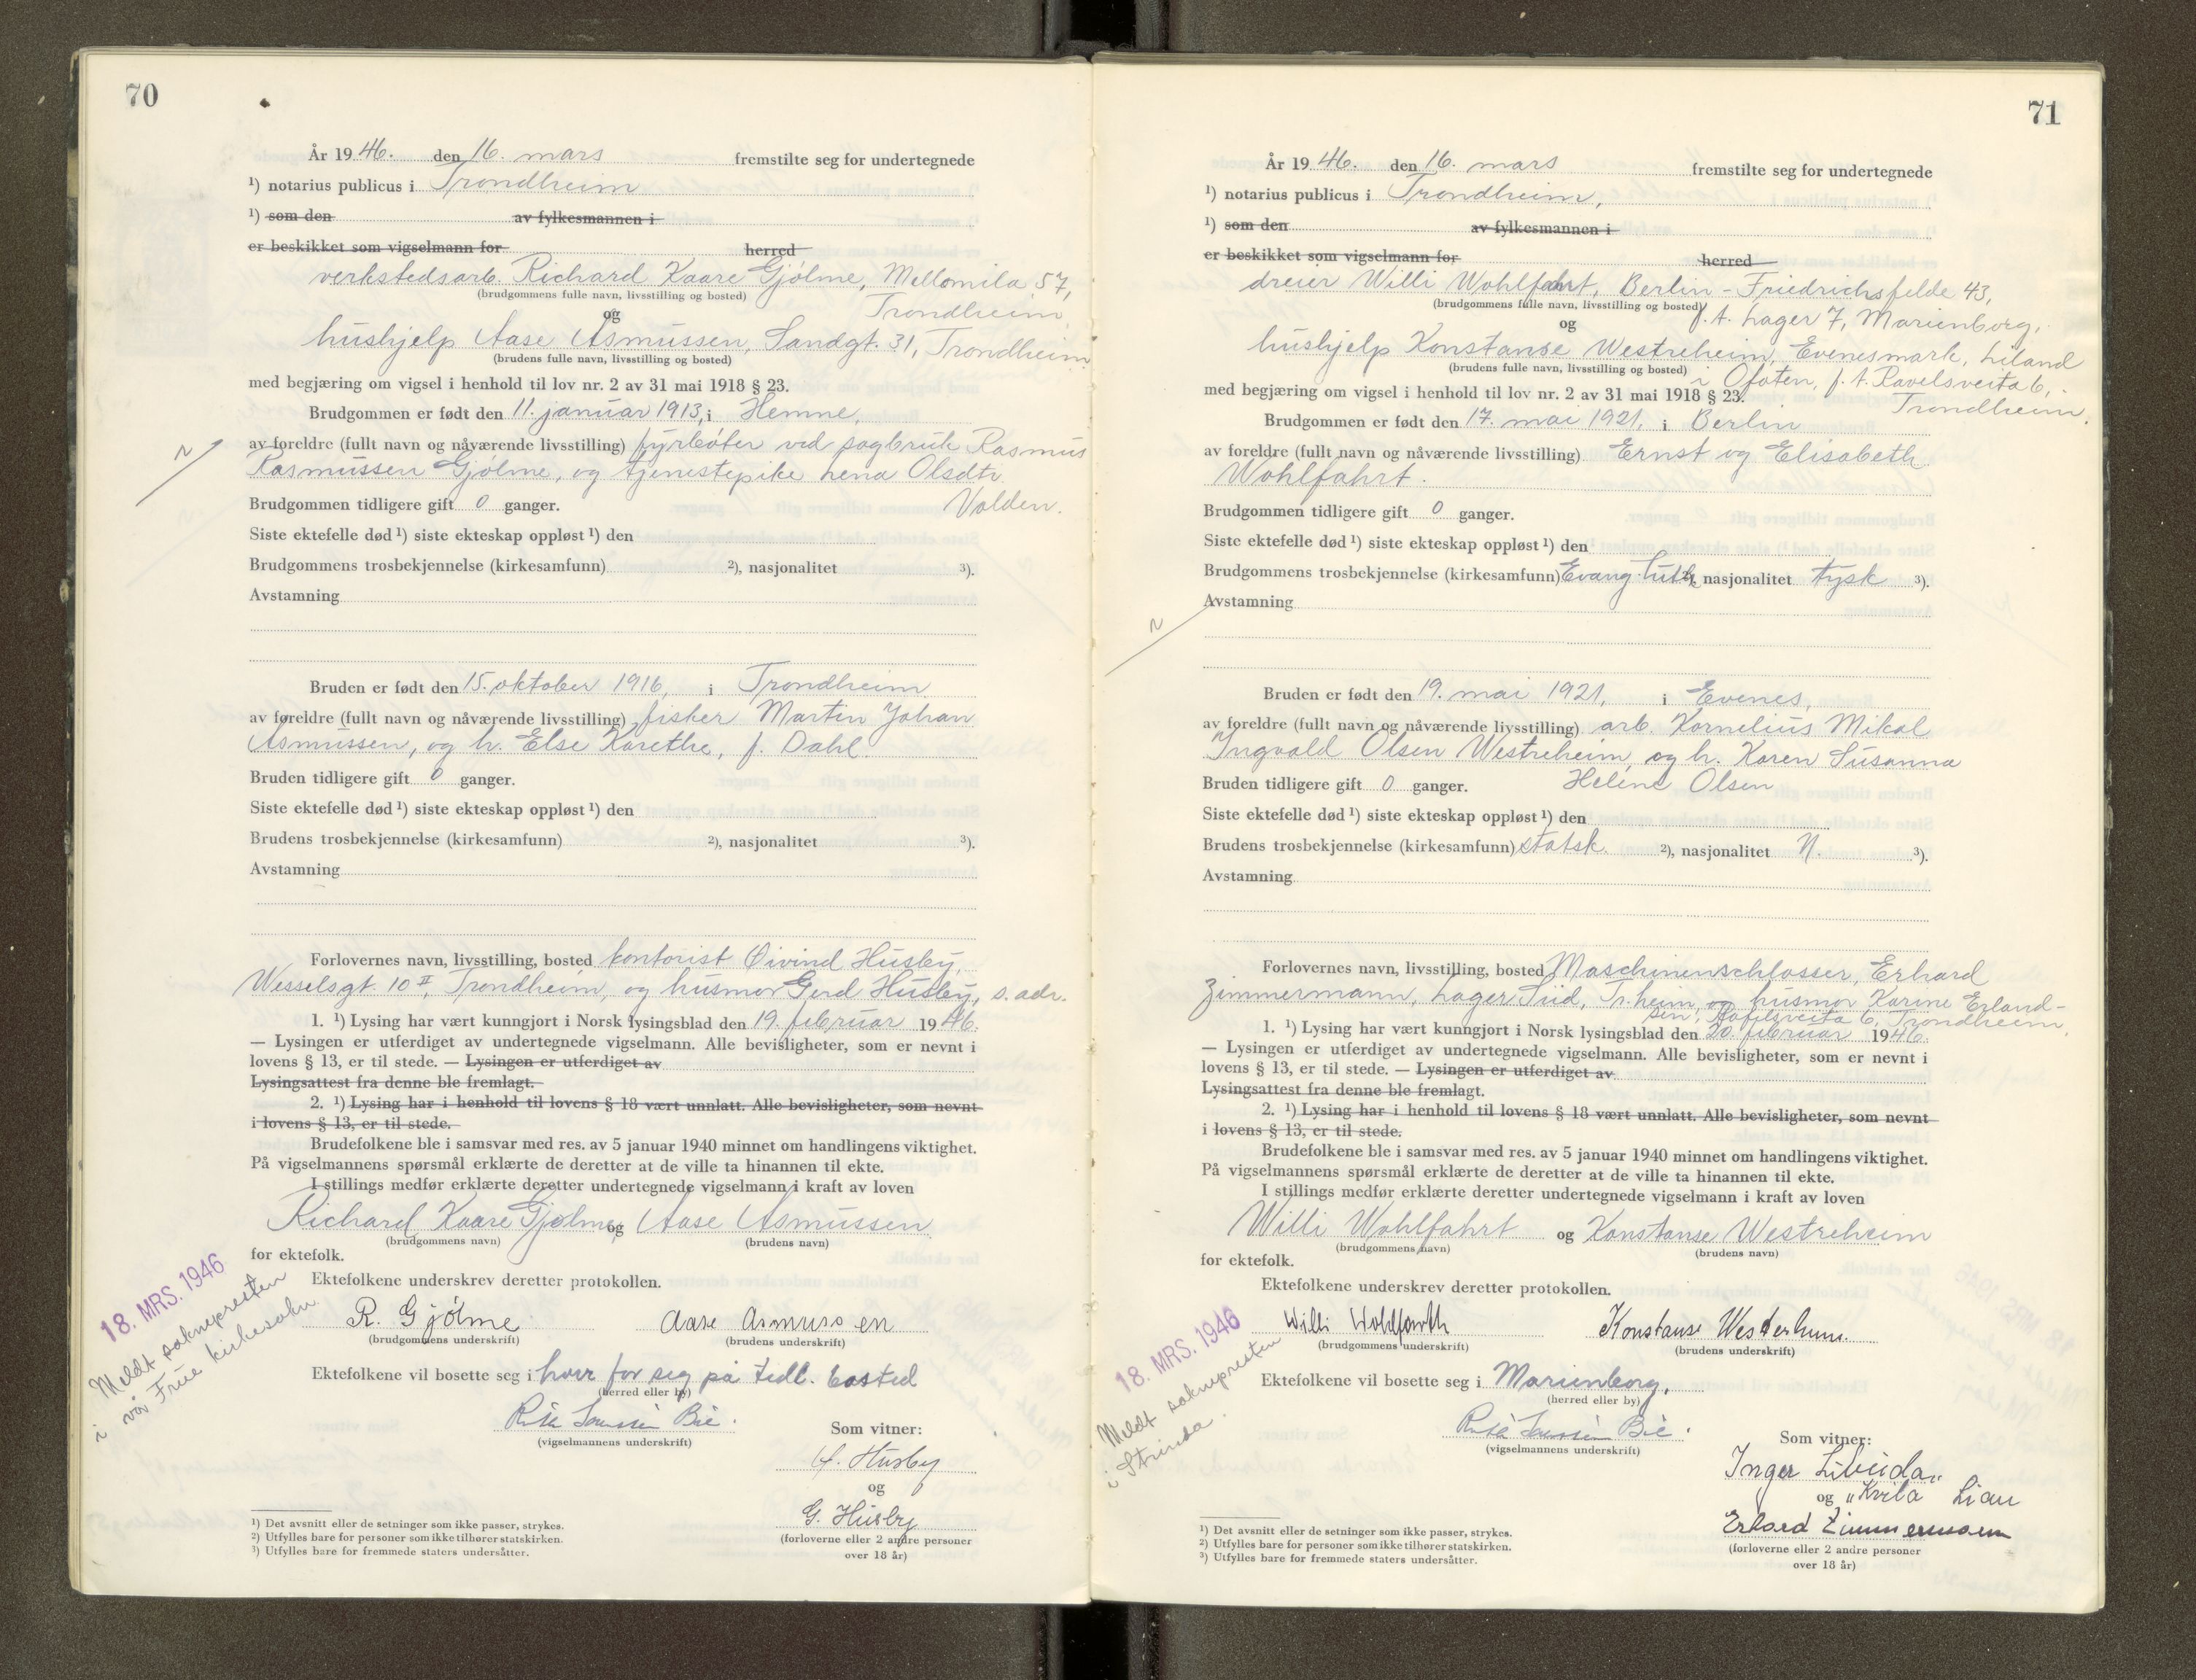 70
År 1946. den 16. mars fremstilte seg for undertegnede
¹) notarius publicus i Trondheim
¹) som den av fylkesmannen i
er beskikket som vigselmann for herred
verkstedsarb. Richard Kaare Gjølme, Mellomila 57,
(brudgommens fulle navn, livsstilling og bosted)
Trondheim
og
hushjelp Aase Asmussen, Sandgt. 31, Trondheim
(brudens fulle navn, livsstilling og bosted)
med begjæring om vigsel i henhold til lov nr. 2 av 31 mai 1918 § 23.
Brudgommen er født den 11. januar 1913, i Hemne,
av foreldre (fullt navn og nåværende livsstilling) fyrbøter ved sagbruk Rasmus
Rasmussen Gjølme, og tjenestepike Lena Olsdtr.
Volden.
Brudgommen tidligere gift 0 ganger.
Siste ektefelle død ¹) siste ekteskap oppløst ¹) den
Brudgommens trosbekjennelse (kirkesamfunn) ²), nasjonalitet ³).
Avstamning
Bruden er født den 15. oktober 1916, i Trondheim
av foreldre (fullt navn og nåværende livsstilling) fisker Martin Johan
Asmussen, og h. Else Karethe, f. Dahl.
Bruden tidligere gift 0 ganger.
Siste ektefelle død ¹) siste ekteskap oppløst ¹) den
Brudens trosbekjennelse (kirkesamfunn) ²), nasjonalitet ³).
Avstamning
Forlovernes navn, livsstilling, bosted kontorist Øivind Husby,
Wesselsgt. 10 II, Trondheim, og husmor Gerd Husby, s. adr.
1. ¹) Lysing har vært kunngjort i Norsk lysingsblad den 19. februar 1946.
— Lysingen er utferdiget av undertegnede vigselmann. Alle bevisligheter, som er nevnt i
lovens § 13, er til stede. — Lysingen er utferdiget av
Lysingsattest fra denne ble fremlagt.
2. ¹) Lysing har i henhold til lovens § 18 vært unnlatt. Alle bevisligheter, som nevnt
i lovens § 13, er til stede.
Brudefolkene ble i samsvar med res. av 5 januar 1940 minnet om handlingens viktighet.
På vigselmannens spørsmål erklærte de deretter at de ville ta hinannen til ekte.
I stillings medfør erklærte deretter undertegnede vigselmann i kraft av loven
Richard Kaare Gjølme og Aase Asmussen
(brudgommens navn) (brudens navn)
for ektefolk.
Ektefolkene underskrev deretter protokollen.
R. Gjølme Aase Asmussen
(brudgommens underskrift) (brudens underskrift)
18. MRS. 1946
Meldt soknepresten
i vår Frue kirkesokn.
Ektefolkene vil bosette seg i hver for seg på tidl. bosted
(herred eller by)
(vigselmannens underskrift)
Som vitner:
Husby
og
G. Husby
(forloverne eller 2 andre personer
over 18 år)
¹) Det avsnitt eller de setninger som ikke passer, strykes.
²) Utfylles bare for personer som ikke tilhører statskirken.
³) Utfylles bare for fremmede staters undersåtter.
71
År 1946. den 16. mars fremstilte seg for undertegnede
¹) notarius publicus i Trondheim,
¹) som den av fylkesmannen i
er beskikket som vigselmann for herred
dreier Willi Wohlfahrt, Berlin - Friedrichsfelde 43,
(brudgommens fulle navn, livsstilling og bosted)
f.t. Lager 7, Marienborg,
og
hushjelp Konstanse Westreheim, Evenesmark, Liland
(brudens fulle navn, livsstilling og bosted)
i Ofoten, f.t. Ravelsveita 6,
med begjæring om vigsel i henhold til lov nr. 2 av 31 mai 1918 § 23.
Trondheim.
Brudgommen er født den 17. mai 1921, i Berlin
av foreldre (fullt navn og nåværende livsstilling) Ernst og Elisabeth
Wohlfahrt.
Brudgommen tidligere gift 0 ganger.
Siste ektefelle død ¹) siste ekteskap oppløst ¹) den
Brudgommens trosbekjennelse (kirkesamfunn) Evang. luth. nasjonalitet tysk ³).
Avstamning
Bruden er født den 19. mai 1921, i Evenes,
av foreldre (fullt navn og nåværende livsstilling) arb. Kornelius Mikal
Ingvald Olsen Westreheim, og h. Karen Susanna
Helene Olsen
Bruden tidligere gift 0 ganger.
Siste ektefelle død ¹) siste ekteskap oppløst ¹) den
Brudens trosbekjennelse (kirkesamfunn) statsk. ²), nasjonalitet N. ³).
Avstamning
Forlovernes navn, livsstilling, bosted Maschinenschlosser, Erhard
Zimmermann, Lager Süd, Tr.heim, og husmor Karine Erland-
sen, Ravelsveita 6, Trondheim,
1. ¹) Lysing har vært kunngjort i Norsk lysingsblad den 20. februar 1946.
— Lysingen er utferdiget av undertegnede vigselmann. Alle bevisligheter, som er nevnt i
lovens § 13, er til stede. — Lysingen er utferdiget av
Lysingsattest fra denne ble fremlagt.
2. ¹) Lysing har i henhold til lovens § 18 vært unnlatt. Alle bevisligheter, som nevnt
i lovens § 13, er til stede.
Brudefolkene ble i samsvar med res. av 5 januar 1940 minnet om handlingens viktighet.
På vigselmannens spørsmål erklærte de deretter at de ville ta hinannen til ekte.
I stillings medfør erklærte deretter undertegnede vigselmann i kraft av loven
Willi Wohlfahrt og Konstanse Westreheim
(brudgommens navn) (brudens navn)
for ektefolk.
Ektefolkene underskrev deretter protokollen.
Willi Wohlfarth Konstanse
(brudgommens underskrift) (brudens underskrift)
18. MRS. 1946
Meldt soknepresten
i Strinda.
Ektefolkene vil bosette seg i Marienborg,
(herred eller by)
(vigselmannens underskrift)
Som vitner:
Inger
og "Kvila" Lian
Erhard Zimmermann
(forloverne eller 2 andre personer
over 18 år)
¹) Det avsnitt eller de setninger som ikke passer, strykes.
²) Utfylles bare for personer som ikke tilhører statskirken.
³) Utfylles bare for fremmede staters undersåtter.